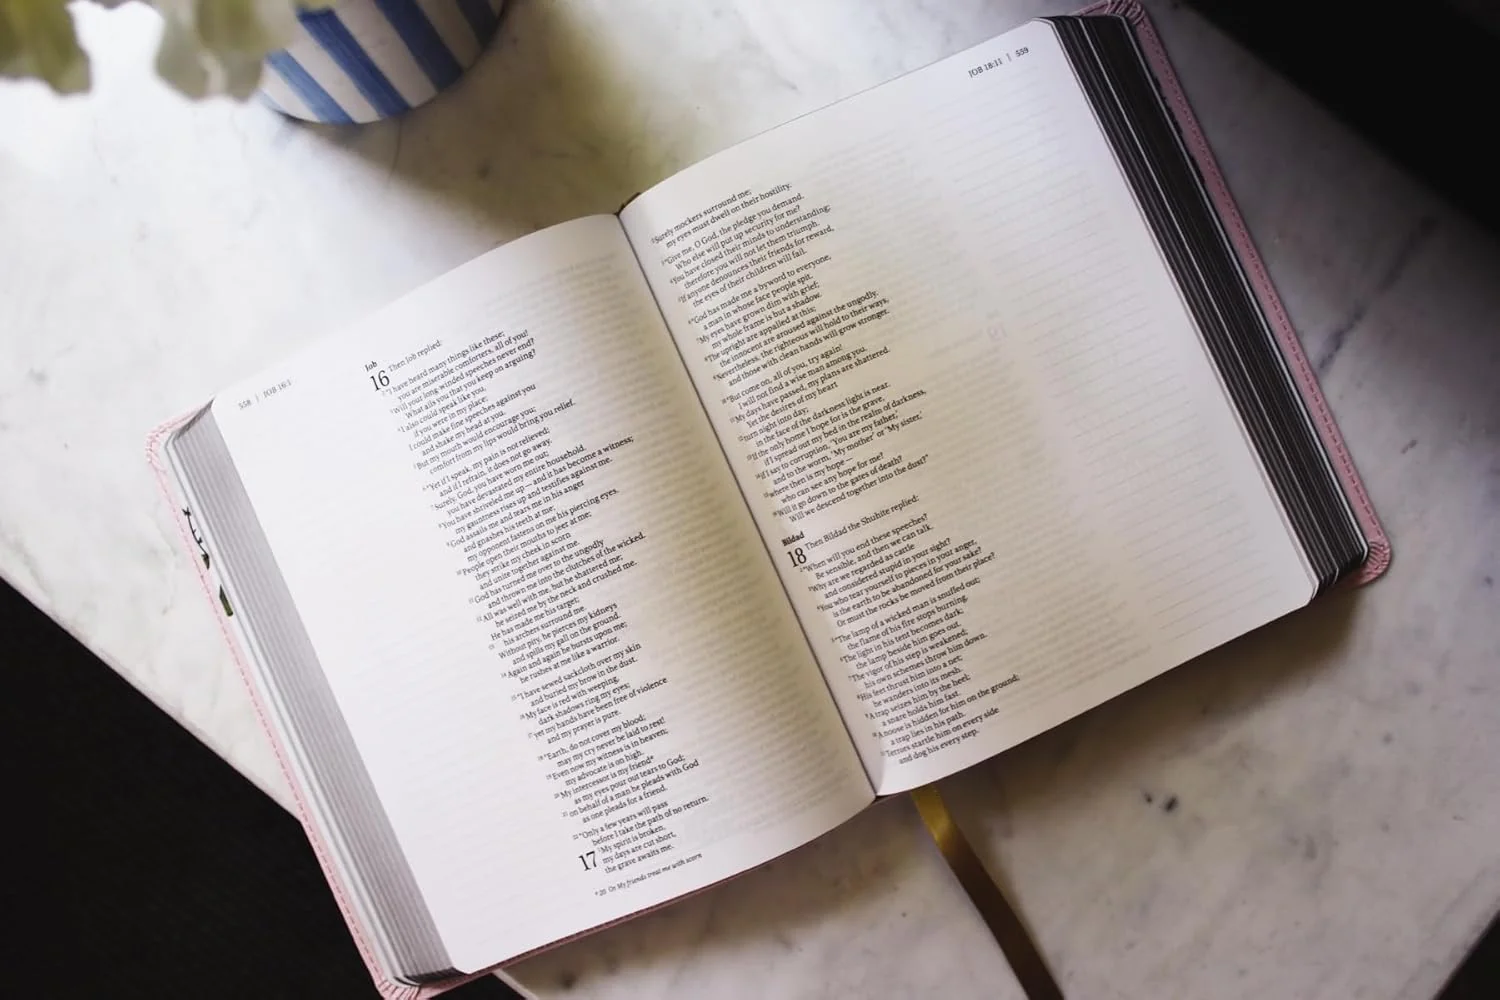 558 | JOB 16:1
Job
16 Then Job replied:
2 "I have heard many things like these;
you are miserable comforters, all of you!
3 Will your long-winded speeches never end?
What ails you that you keep on arguing?
4 I also could speak like you,
if you were in my place;
I could make fine speeches against you
and shake my head at you.
5 But my mouth would encourage you;
comfort from my lips would bring you relief.
6 "Yet if I speak, my pain is not relieved;
and if I refrain, it does not go away.
7 Surely, God, you have worn me out;
you have devastated my entire household.
8 You have shriveled me up—and it has become a witness;
my gauntness rises up and testifies against me.
9 God assails me and tears me in his anger
and gnashes his teeth at me;
my opponent fastens on me his piercing eyes.
10 People open their mouths to jeer at me;
they strike my cheek in scorn
and unite together against me.
11 God has turned me over to the ungodly
and thrown me into the clutches of the wicked.
12 All was well with me, but he shattered me;
he seized me by the neck and crushed me.
He has made me his target;
13 his archers surround me.
Without pity, he pierces my kidneys
and spills my gall on the ground.
14 Again and again he bursts upon me;
he rushes at me like a warrior.
15 "I have sewed sackcloth over my skin
and buried my brow in the dust.
16 My face is red with weeping,
dark shadows ring my eyes;
17 yet my hands have been free of violence
and my prayer is pure.
18 "Earth, do not cover my blood;
may my cry never be laid to rest!
19 Even now my witness is in heaven;
my advocate is on high.
20 My intercessor is my friend a
as my eyes pour out tears to God;
21 on behalf of a man he pleads with God
as one pleads for a friend.
22 "Only a few years will pass
before I take the path of no return.
17 1 My spirit is broken,
my days are cut short,
the grave awaits me.
a 20 Or My friends treat me with scorn
JOB 18:11 | 559
2 Surely mockers surround me;
my eyes must dwell on their hostility.
3 "Give me, O God, the pledge you demand.
Who else will put up security for me?
4 You have closed their minds to understanding;
therefore you will not let them triumph.
5 If anyone denounces their friends for reward,
the eyes of their children will fail.
6 "God has made me a byword to everyone,
a man in whose face people spit.
7 My eyes have grown dim with grief;
my whole frame is but a shadow.
8 The upright are appalled at this;
the innocent are aroused against the ungodly.
9 Nevertheless, the righteous will hold to their ways,
and those with clean hands will grow stronger.
10 "But come on, all of you, try again!
I will not find a wise man among you.
11 My days have passed, my plans are shattered.
Yet the desires of my heart
12 turn night into day;
in the face of the darkness light is near.
13 If the only home I hope for is the grave,
if I spread out my bed in the realm of darkness,
14 if I say to corruption, 'You are my father,'
and to the worm, 'My mother' or 'My sister,'
15 where then is my hope—
who can see any hope for me?
16 Will it go down to the gates of death?
Will we descend together into the dust?"
Bildad
18 Then Bildad the Shuhite replied:
2 "When will you end these speeches?
Be sensible, and then we can talk.
3 Why are we regarded as cattle
and considered stupid in your sight?
4 You who tear yourself to pieces in your anger,
is the earth to be abandoned for your sake?
Or must the rocks be moved from their place?
5 "The lamp of a wicked man is snuffed out;
the flame of his fire stops burning.
6 The light in his tent becomes dark;
the lamp beside him goes out.
7 The vigor of his step is weakened;
his own schemes throw him down.
8 His feet thrust him into a net;
he wanders into its mesh.
9 A trap seizes him by the heel;
a snare holds him fast.
10 A noose is hidden for him on the ground;
a trap lies in his path.
11 Terrors startle him on every side
and dog his every step.